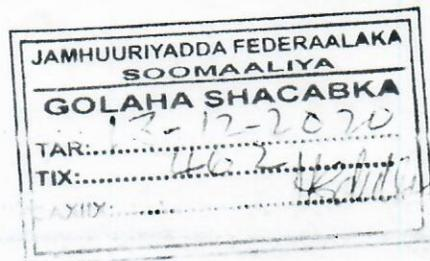 JAMHUURIYADDA FEDERAALAKA
SOOMAALIYA
GOLAHA SHACABKA
TAR:....13-12-2020
TIX:..........462